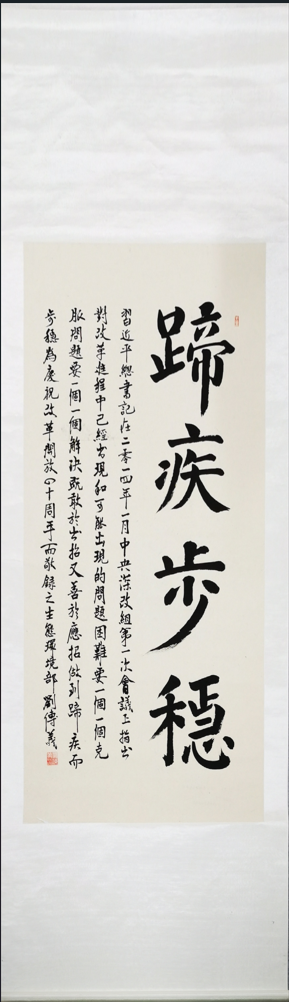 蹄疾步穩
習近平總書記在二零一四年一月中央深改組第一次會議上指出
對改革進程中已經出現和可能出現的問題困難要一個一個克
服問題要一個一個解決既敢於出招又善於應招做到蹄疾而
步穩為慶祝改革開放四十周年而敬錄之生態環境部劉傳義